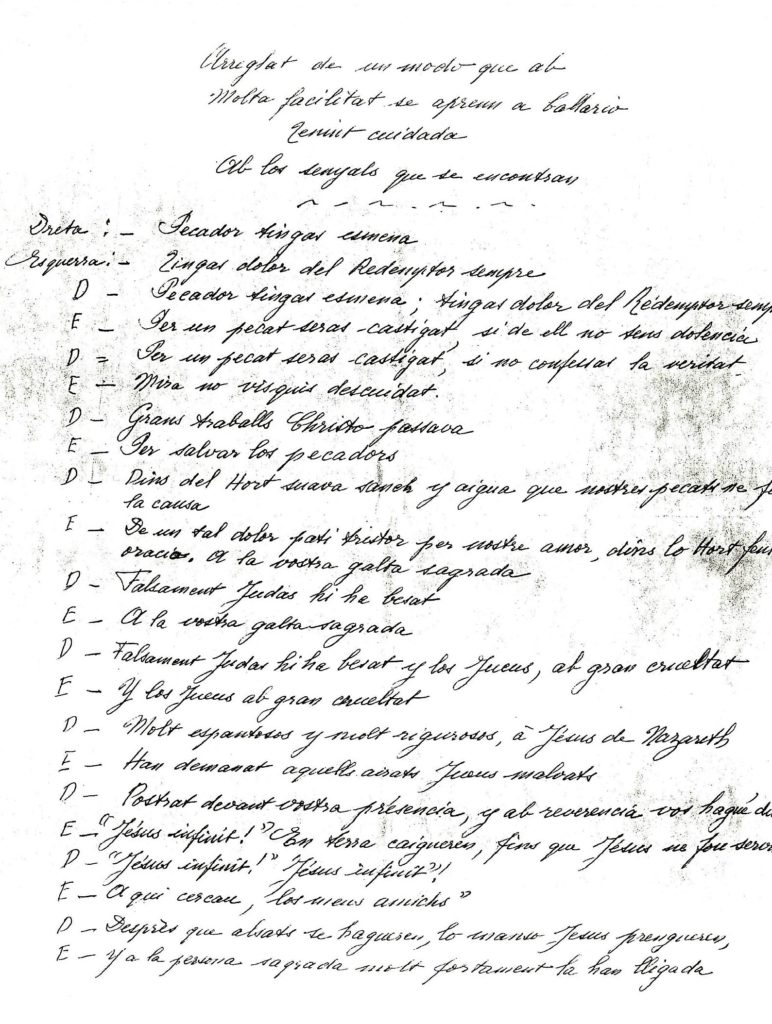 Arreglat de un modo que ab
Molta facilitat se apren a ballario
Tenint cuidada
Ab los senyals que se encontran
Dreta : – Pecador tingas esmena
Esquerra : – Tingas dolor del Redemptor sempre
D – Pecador tingas esmena ; tingas dolor del Rédemptor semp
E – Per un pecat seras castigat, si de ell no tens dolencia
D = Per un pecat seras castigat, si no confessas la veritat.
E – Mira no visquis descuidat.
D – Grans traballs Christo passava
E – Per salvar los pecadors
D – Dins del Hort suava sanch y aigua que nostres pecats ne f
la causa
E – De un tal dolor pati tristor per nostre amor, dins lo Hort feu
oracio. A la vostra galta sagrada
D – Falsament Judas hi ha besat
E – A la vostra galta sagrada
D – Falsament Judas hi ha besat y los Jueus, ab gran crueltat
E – Y los Jueus ab gran crueltat
D – Molt espantosos y molt rigurosos, à Jésus de Nazareth
E – Han demanat aquells airats Jueus malvats
D – Postrat devant vostra présencia, y ab reverencia vos hagué di
E – "Jésus infinit!" En terra caigueren, fins que Jésus ne fou serv
D – "Jésus infinit!" "Jésus infinit"!
E – A qui cercau, "los meus amichs"
D – Desprès que alsats se hagueren, lo manso Jesus prengueren,
E – y a la persona sagrada molt fortament la han lligada